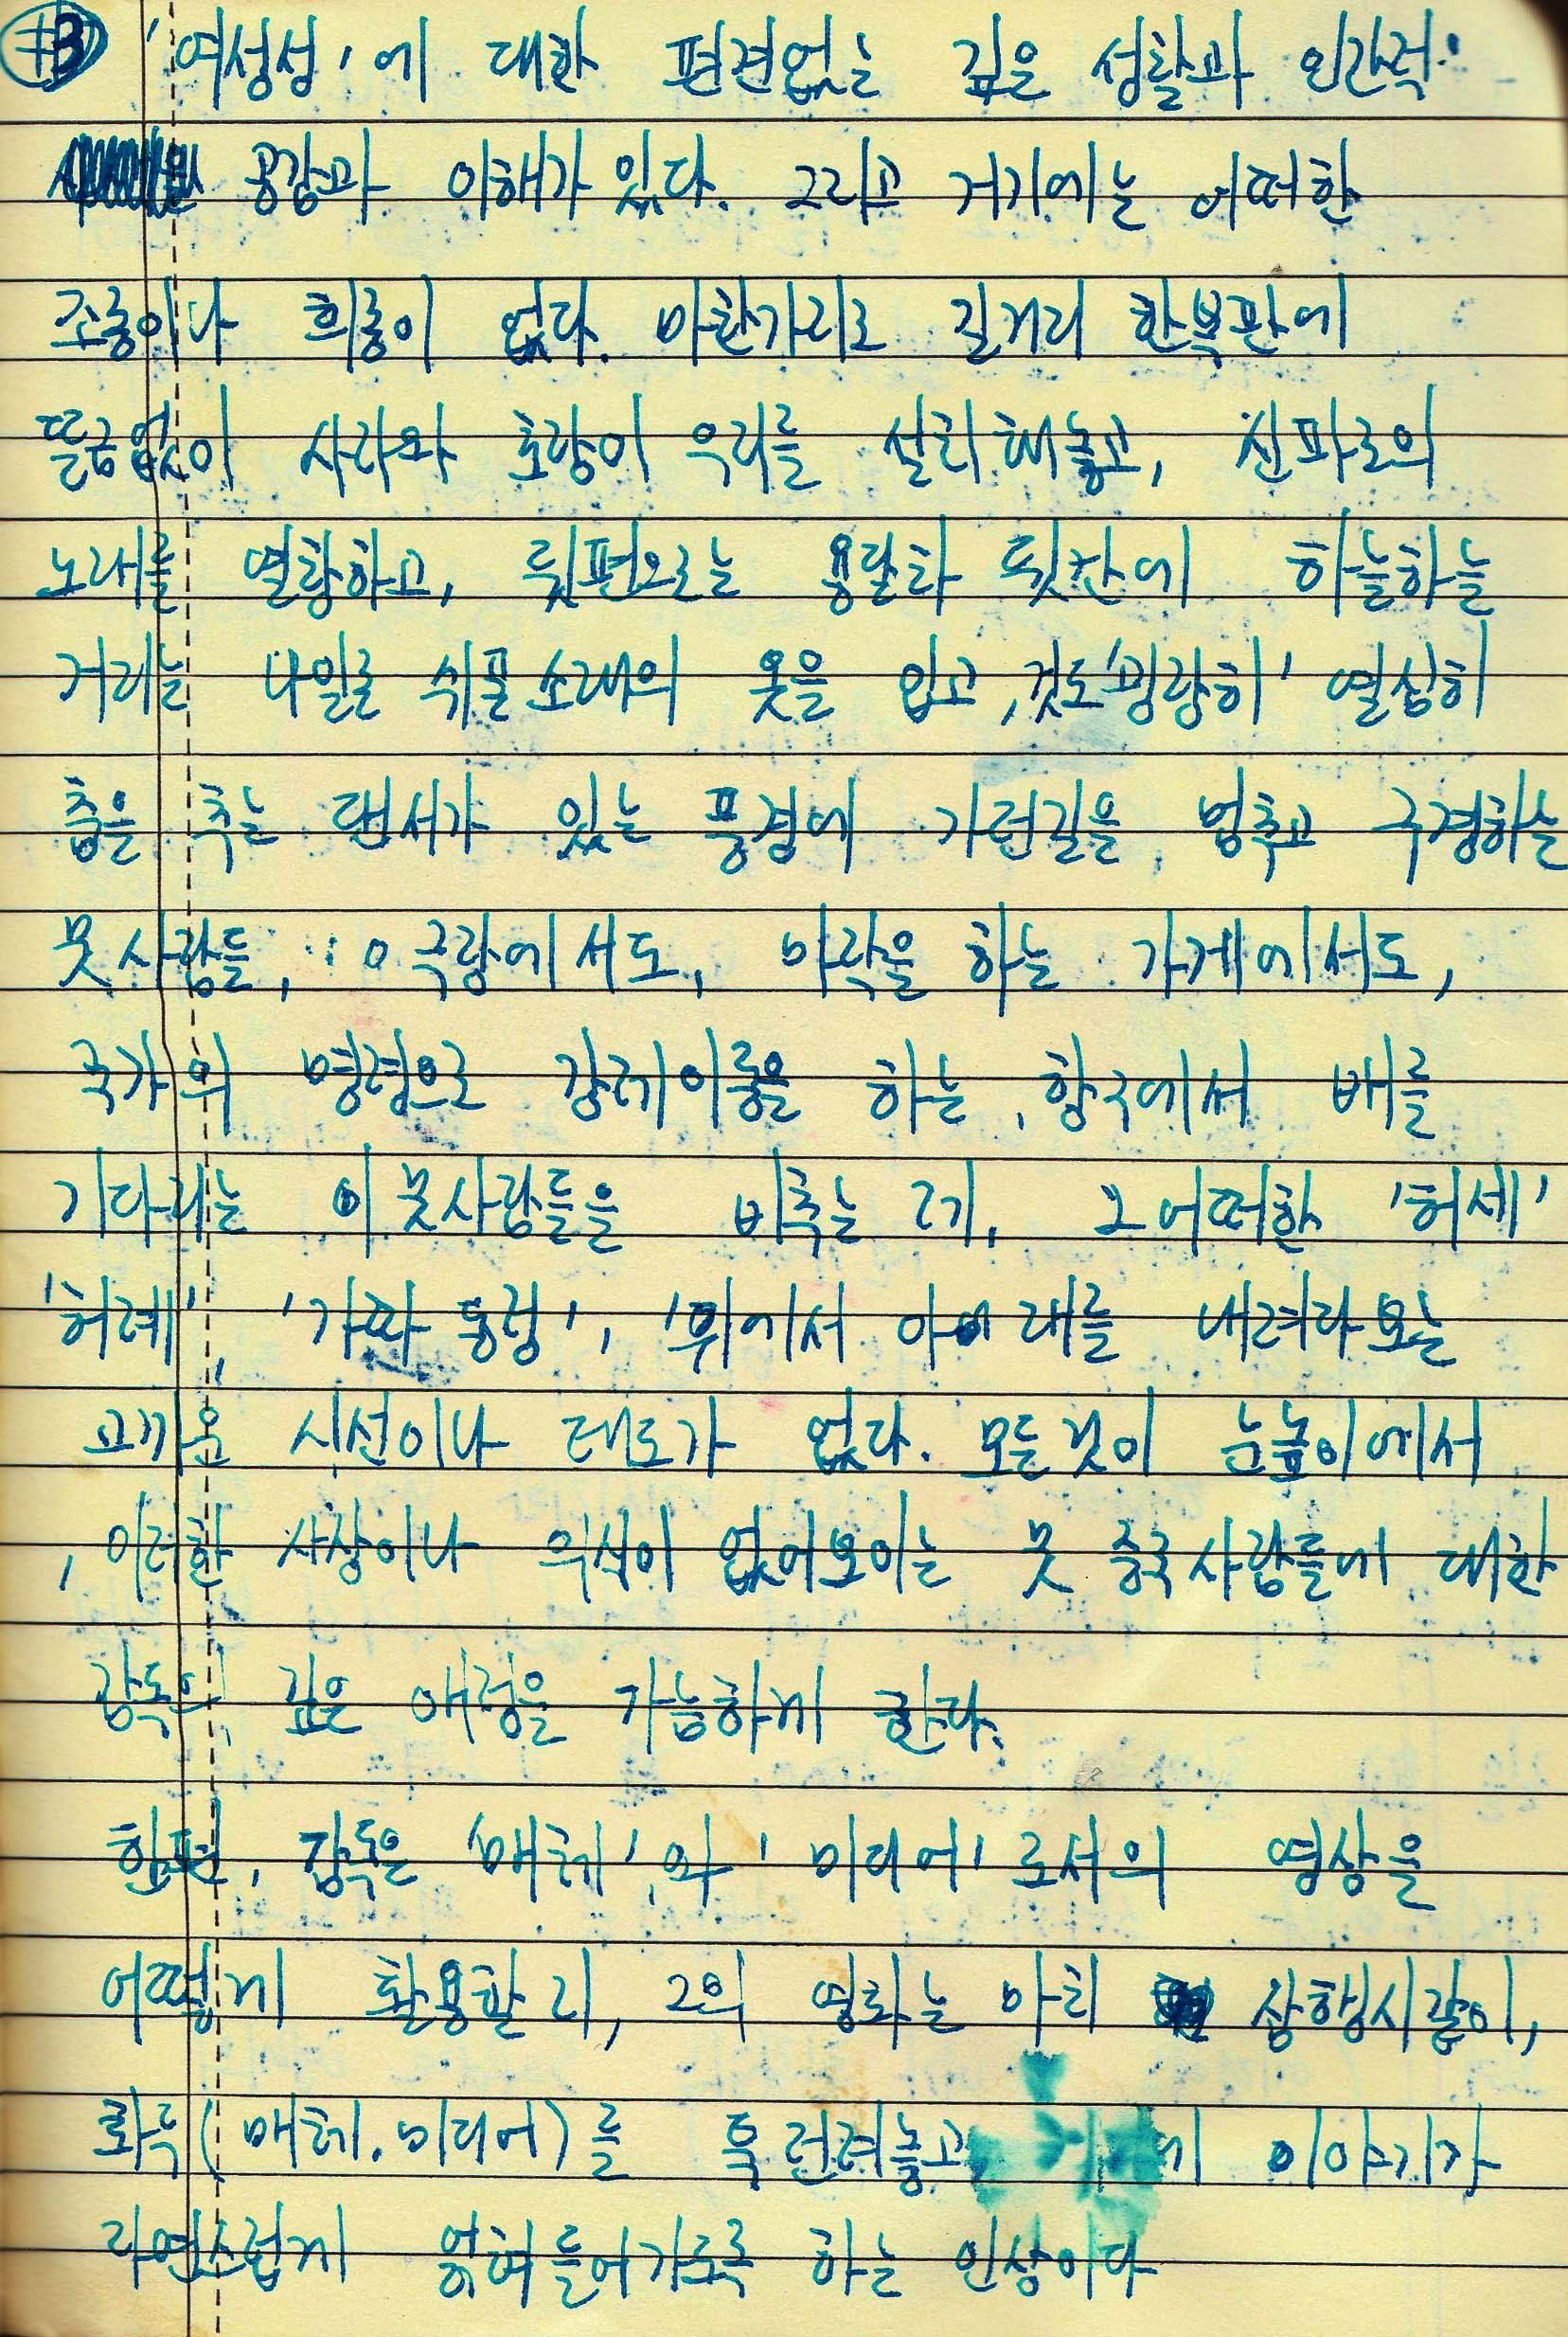 #3 '여성성'에 대한 편견없는 깊은 성찰과 인간적
공감과 이해가 있다. 그리고 거기에는 어떠한
조롱이나 희롱이 없다. 마찬가지로 길거리 한복판에
뜬금없이 사자와 호랑이 우리를 설치해놓고, 신파조의
노래를 열창하고, 뒷편으로는 용달차 뒷칸에 하늘하늘
거리는 나일론 쉬폰소재의 옷을 입고, 것도 '명랑히' 열심히
춤을 추는 댄서가 있는 풍경에 가던길을 멈추고 구경하는
뭇사람들, 극장에서도, 마작을 하는 가게에서도,
국가의 명령으로 강제이주를 하는, 항구에서 배를
기다리는 이 뭇사람들을 비추는 데, 그 어떠한 '허세'
'허례', '가짜 동정', '위에서 아래를 내려다보는
고까운 시선이나 태도가 없다. 모든것이 눈높이에서
, 이러한 사상이나 의식이 없어보이는 뭇 중국사람들에 대한
감독의 깊은 애정을 가능하게 한다.
한편, 감독은 '매체'와 '미디어'로서의 영상을
어떻게 활용할지, 그의 영화는 마치 상형시같이,
화두(매체.미디어)를 툭 던져놓고, 이야기가
자연스럽게 얽혀들어가도록 하는 인상이다